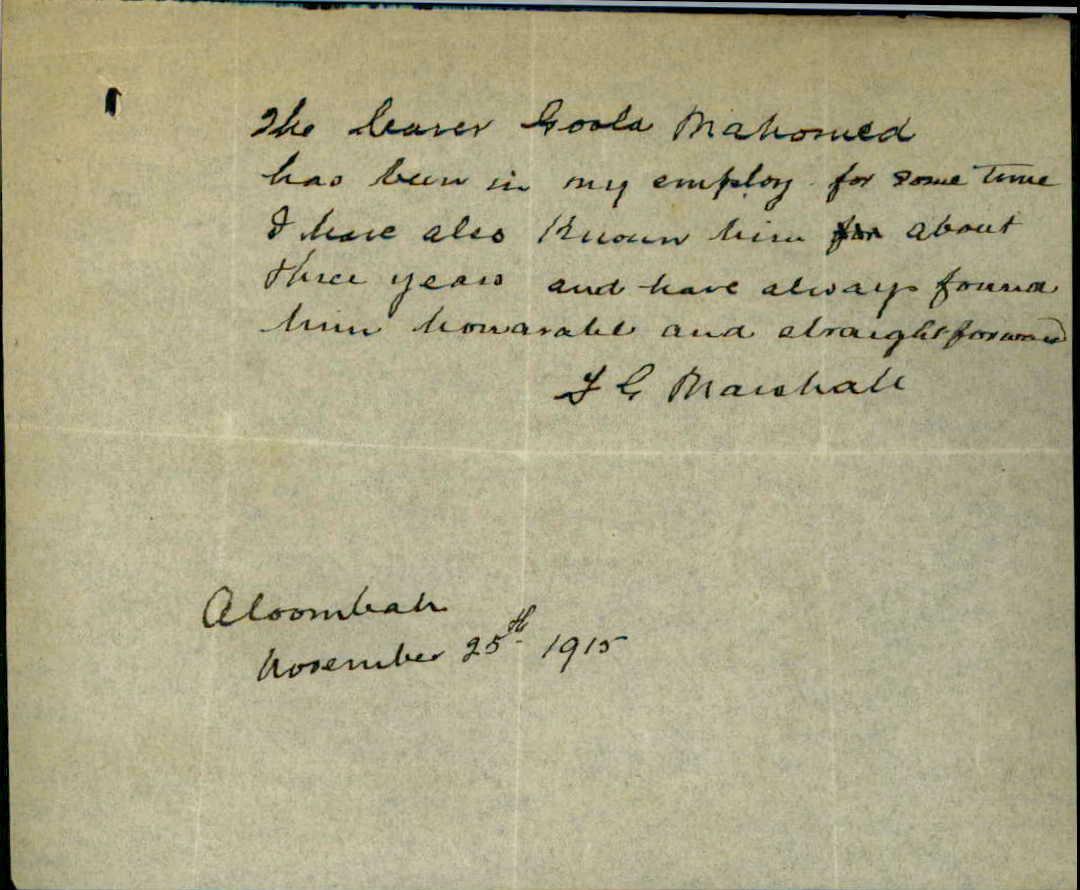 The bearer Goola Mahomed
has been in my employ for some time
I have also known him for about
three years and have always found
him honorable and straightforward
F G Marshall
Aloombah
November 25th 1915